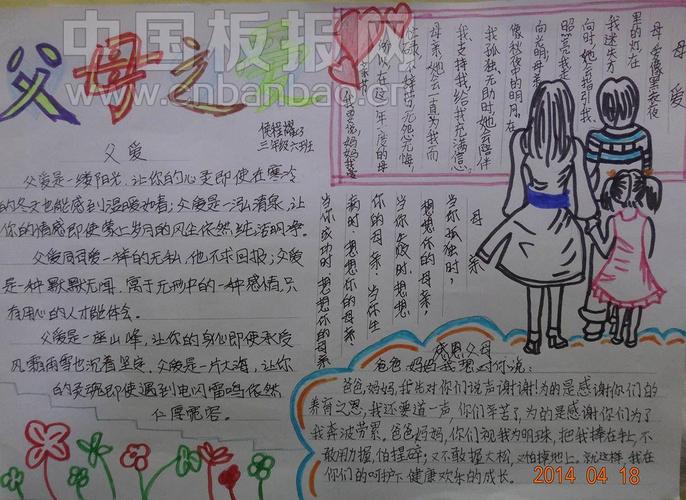 中国板报网
www.cnbanbao.cn
父母之爱
侯程耀
三年级六班
父爱
父爱是一缕阳光,让你的心灵即使在寒冷
的冬天也能感到温暖如春;父爱是一泓清泉,让
你的情感即使蒙上岁月的风尘依然纯洁明净。
父爱同母爱一样的无私,他不求回报;父爱
是一种默默无闻,寓于无形中的一种感情,只
有用心的人才能体会。
父爱是一座山峰,让你的身心即使承受
风霜雨雪也沉着坚定;父爱是一片大海,让你
的灵魂即使遇到电闪雷鸣依然
仁厚宽容。
母爱
母爱像黑夜
里的灯,在
我迷失方
向时,她会指引我,
照亮我走
向光明;母亲
像秋夜中的明月,在
我孤独无助时,她会陪伴
我,支持我,给我充满信
母亲她会一直为我而
无怨无悔,
所以在这一年一度的母
我要说,妈妈我爱
母亲
当你孤独时,
想想你的母亲,
当你失败时,
想想你的母亲,
当你生
病时,想想你的母亲,
当你成功时,想想你的母亲
感恩父母
爸爸、妈妈我想对你说:
爸爸,妈妈,我先对你们说声谢谢!为的是感谢你们的
养育之恩,我还要道一声,你们辛苦了,为的是感谢你们为了
我奔波劳累。爸爸妈妈,你们视我为明珠,把我捧在手上,不
敢用力握,怕捏碎;又不敢握太松,又怕掉地上。就这样,我在
你们的呵护下健康欢乐的成长。
2014 04 18